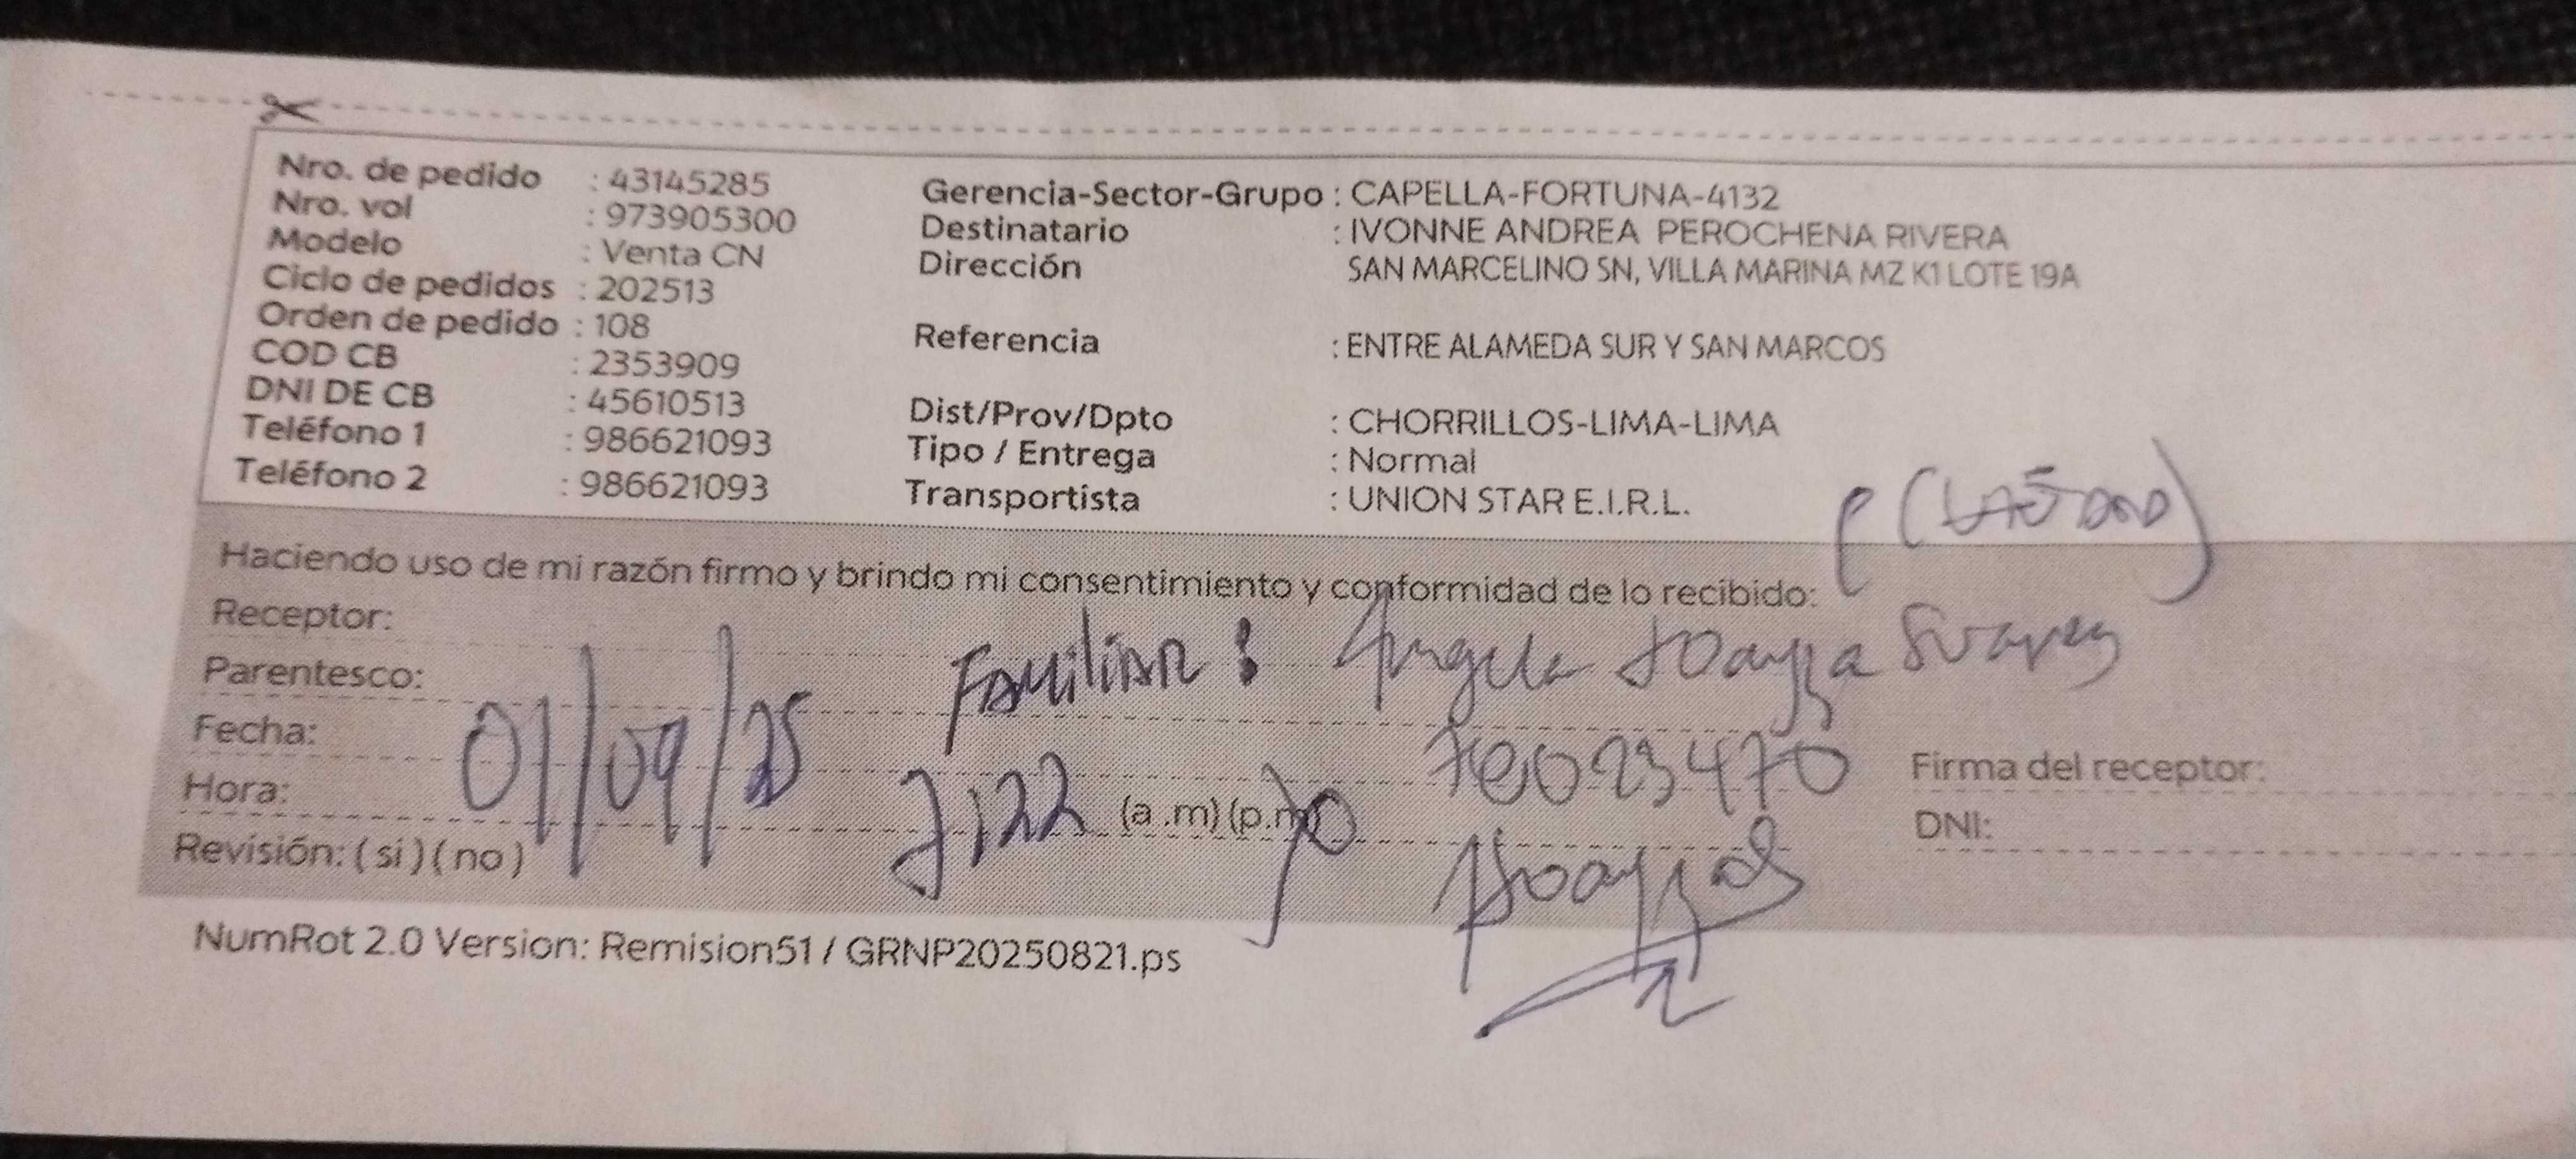 Nro. de pedido : 43145285
Nro. vol : 973905300
Modelo : Venta CN
Ciclo de pedidos : 202513
Orden de pedido : 108
COD CB : 2353909
DNI DE CB : 45610513
Teléfono 1 : 986621093
Teléfono 2 : 986621093
Gerencia-Sector-Grupo : CAPELLA-FORTUNA-4132
Destinatario : IVONNE ANDREA PEROCHENA RIVERA
Dirección SAN MARCELINO SN, VILLA MARINA MZ K1 LOTE 19A
Referencia : ENTRE ALAMEDA SUR Y SAN MARCOS
Dist/Prov/Dpto : CHORRILLOS-LIMA-LIMA
Tipo / Entrega : Normal
Transportista : UNION STAR E.I.R.L.
Haciendo uso de mi razón firmo y brindo mi consentimiento y conformidad de lo recibido:
Receptor:
Parentesco: FAMILIAR : Angela Suarez
Fecha: 01/09/25
Hora: (a.m)(p.m)
Revisión: ( si ) ( no )
Firma del receptor:
DNI:
NumRot 2.0 Version: Remision51 / GRNP20250821.ps